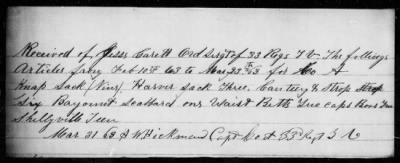 Received of Jesse Carett Ord Sergt of 33 Regt T V The following
Articles from Feb 10th 63 to Mar 23rd 63 for Co A
Knap Sack (Nine) Haver sack Three. Canteen & Strap
Six Bayonet Scabbard one Waist Belts
Shelbyville Tenn
Mar 31 63 Hickman Capt Co